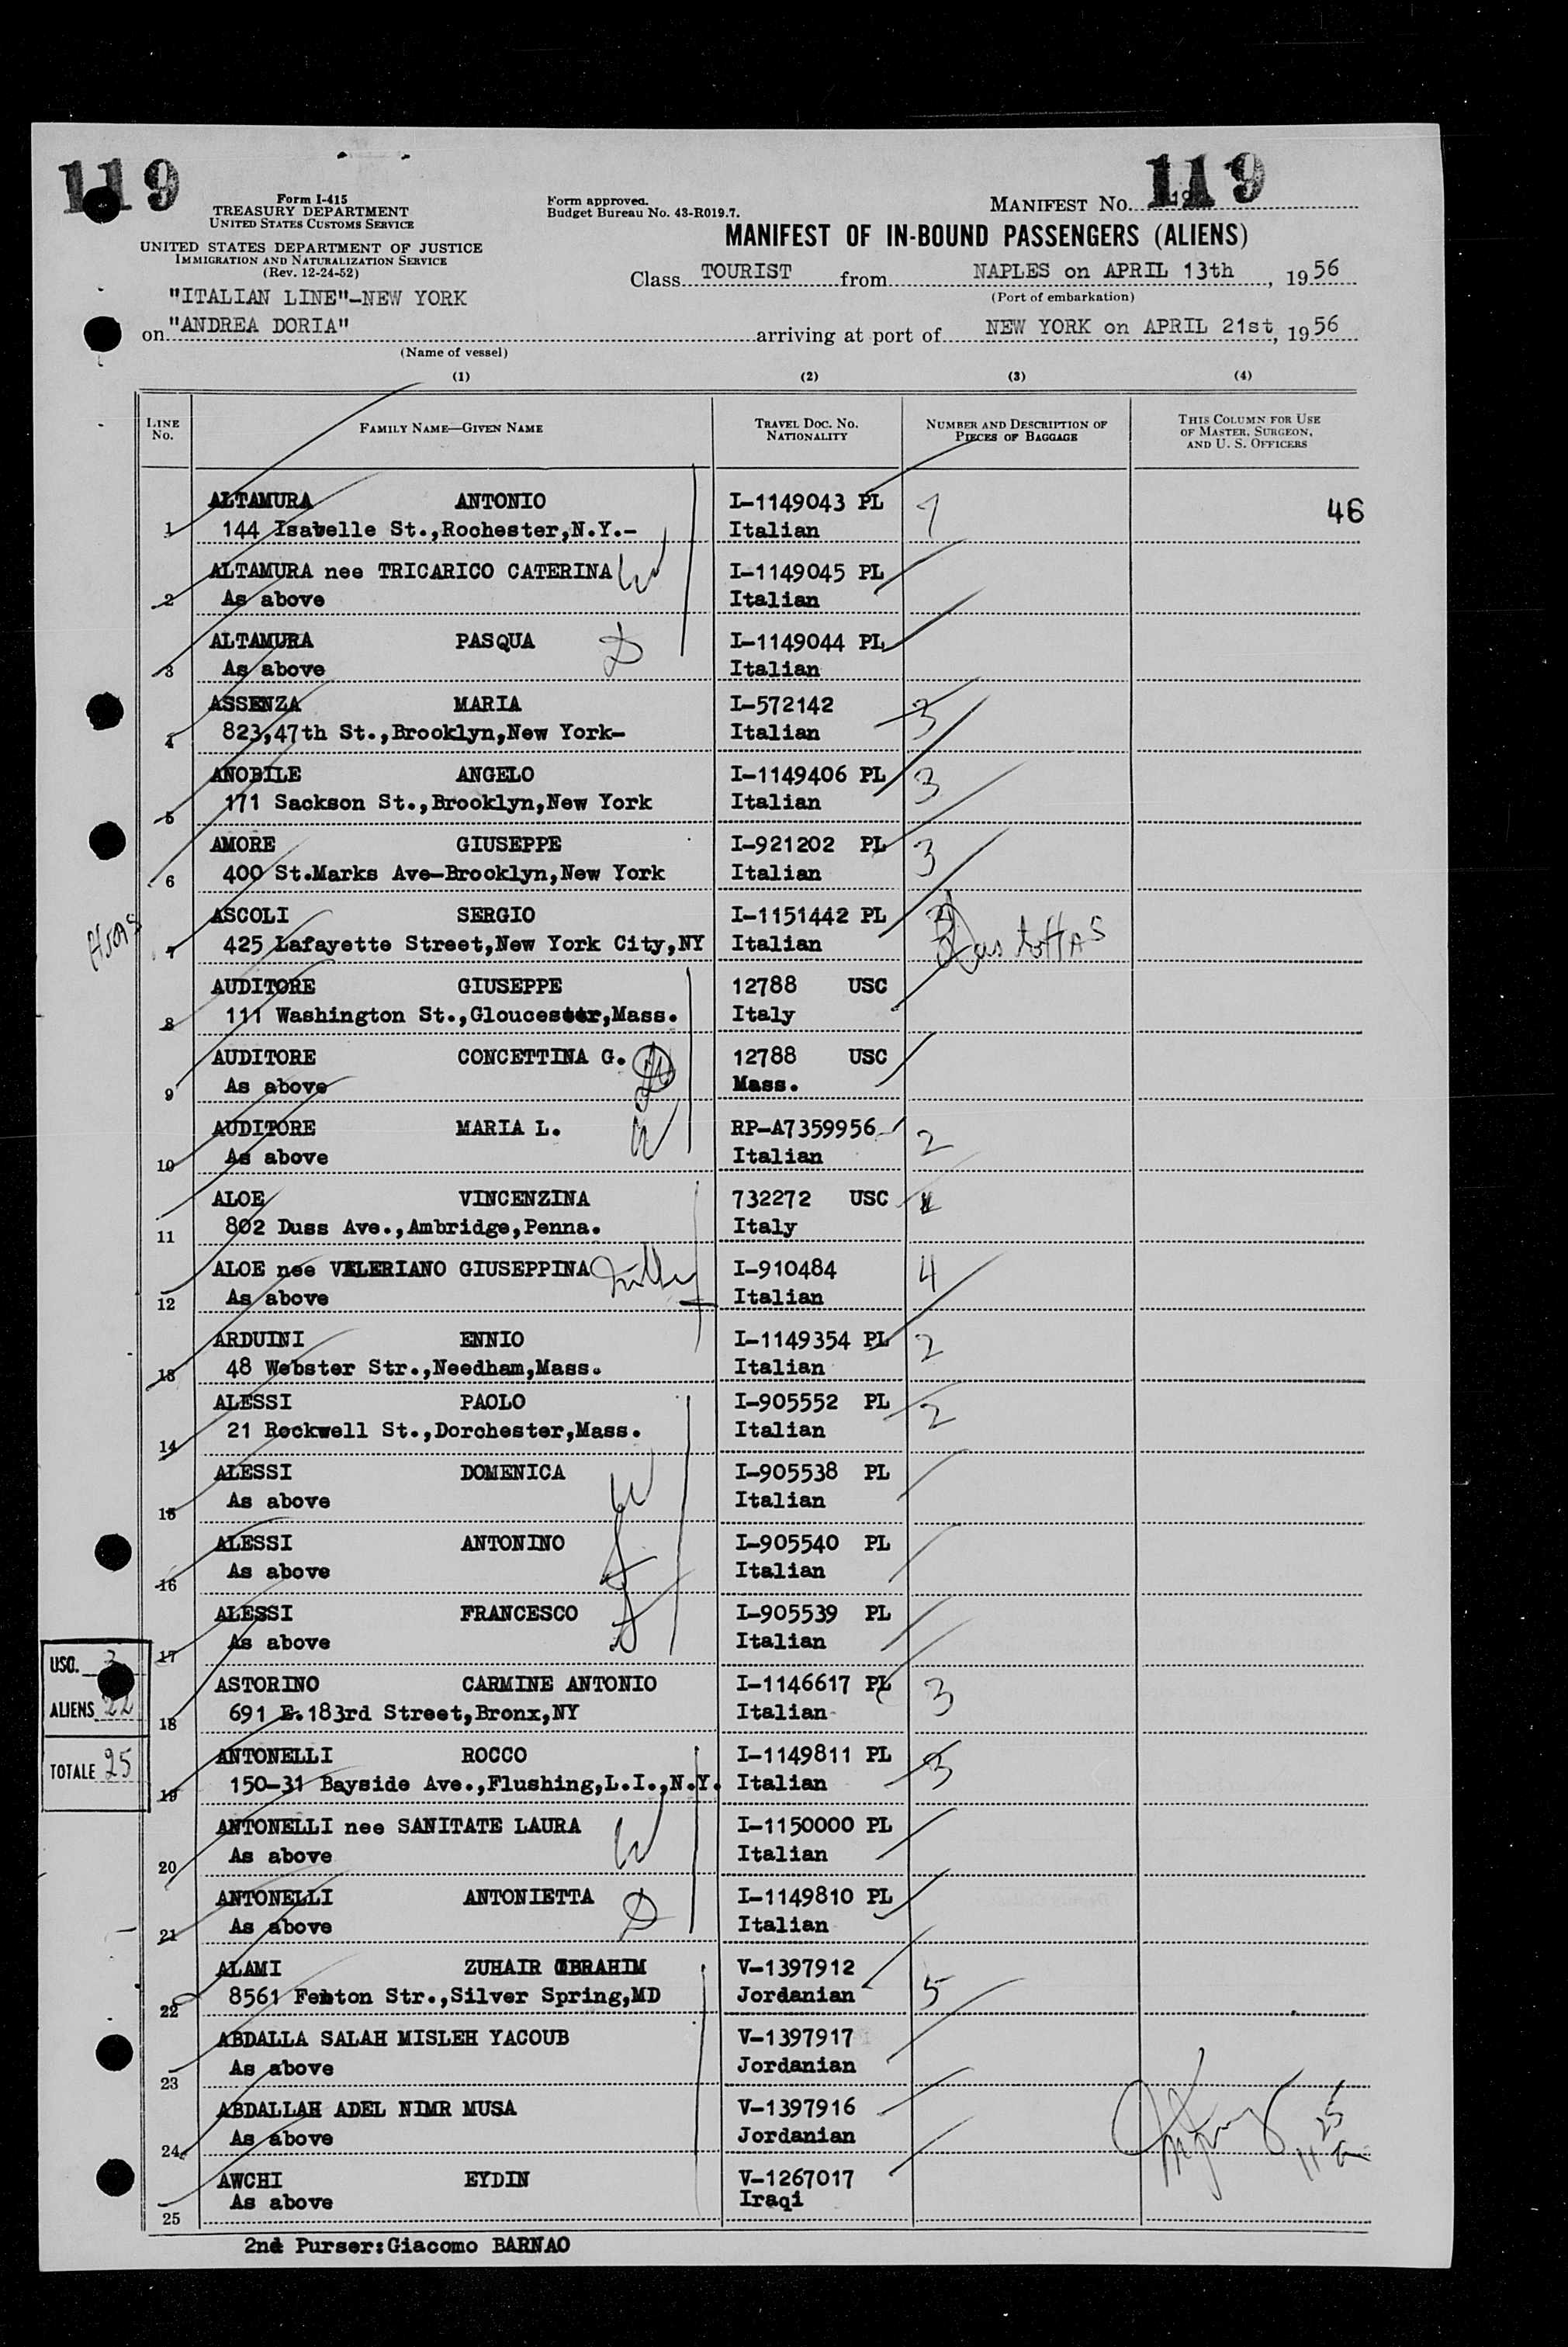 119
119
Form I-415
TREASURY DEPARTMENT
UNITED STATES CUSTOMS SERVICE
UNITED STATES DEPARTMENT OF JUSTICE
IMMIGRATION AND NATURALIZATION SERVICE
(Rev. 12-24-52)
Form approved.
Budget Bureau No. 43-R019.7.
MANIFEST NO.
MANIFEST OF IN-BOUND PASSENGERS (ALIENS)
Class TOURIST from NAPLES on APRIL 13th, 1956
(Port of embarkation)
"ITALIAN LINE"-NEW YORK
on "ANDREA DORIA" arriving at port of NEW YORK on APRIL 21st, 1956
(Name of vessel)
(1) (2) (3) (4)
LINE No. FAMILY NAME—GIVEN NAME TRAVEL DOC. NO. NATIONALITY NUMBER AND DESCRIPTION OF PIECES OF BAGGAGE THIS COLUMN FOR USE OF MASTER, SURGEON, AND U. S. OFFICERS
ALTAMURA ANTONIO I-1149043 PL 7 46
1 144 Isabelle St.,Rochester,N.Y.- Italian
ALTAMURA nee TRICARICO CATERINA W I-1149045 PL
2 As above Italian
ALTAMURA PASQUA D I-1149044 PL
3 As above Italian
ASSENZA MARIA I-572142 3
4 823,47th St.,Brooklyn,New York- Italian
ANOBILE ANGELO I-1149406 PL 3
5 171 Sackson St.,Brooklyn,New York Italian
AMORE GIUSEPPE I-921202 PL 3
6 400 St.Marks Ave-Brooklyn,New York Italian
HIAS
ASCOLI SERGIO I-1151442 PL
7 425 Lafayette Street,New York City,NY Italian
AUDITORE GIUSEPPE 12788 USC
8 111 Washington St.,Gloucester,Mass. Italy
AUDITORE CONCETTINA G. D 12788 USC
9 As above Mass.
AUDITORE MARIA L. W RP-A7359956 2
10 As above Italian
ALOE VINCENZINA 732272 USC
11 802 Duss Ave.,Ambridge,Penna. Italy
ALOE nee VALERIANO GIUSEPPINA I-910484 4
12 As above Italian
ARDUINI ENNIO I-1149354 PL 2
13 48 Webster Str.,Needham,Mass. Italian
ALESSI PAOLO I-905552 PL 2
14 21 Rockwell St.,Dorchester,Mass. Italian
ALESSI DOMENICA W I-905538 PL
15 As above Italian
ALESSI ANTONINO I-905540 PL
16 As above Italian
ALESSI FRANCESCO I-905539 PL
17 As above Italian
USC. 3
ALIENS 22
TOTALE 25
ASTORINO CARMINE ANTONIO I-1146617 PL 3
18 691 E.183rd Street,Bronx,NY Italian
ANTONELLI ROCCO I-1149811 PL 3
19 150-31 Bayside Ave.,Flushing,L.I.,N.Y. Italian
ANTONELLI nee SANITATE LAURA W I-1150000 PL
20 As above Italian
ANTONELLI ANTONIETTA D I-1149810 PL
21 As above Italian
ALAMI ZUHAIR IBRAHIM V-1397912 5
22 8561 Fenton Str.,Silver Spring,MD Jordanian
ABDALLA SALAH MISLEH YACOUB V-1397917
23 As above Jordanian
ABDALLAH ADEL NIMR MUSA V-1397916
24 As above Jordanian
AWCHI EYDIN V-1267017
25 As above Iraqi
2nd Purser:Giacomo BARNAO